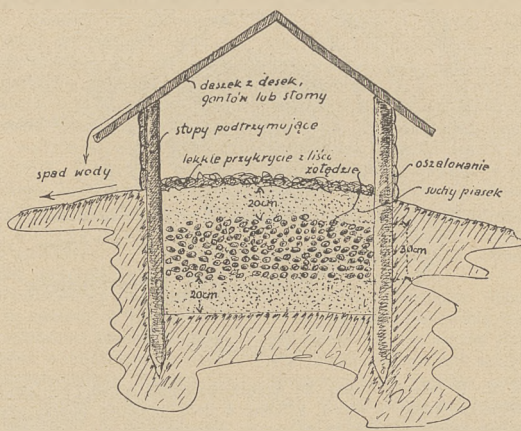 daszek z desek,
gontów lub słomy
słupy podtrzymujące
lekkie przykrycie z liści
żołędzie
oszalowanie
spad wody
suchy piasek
20cm
30cm
20cm